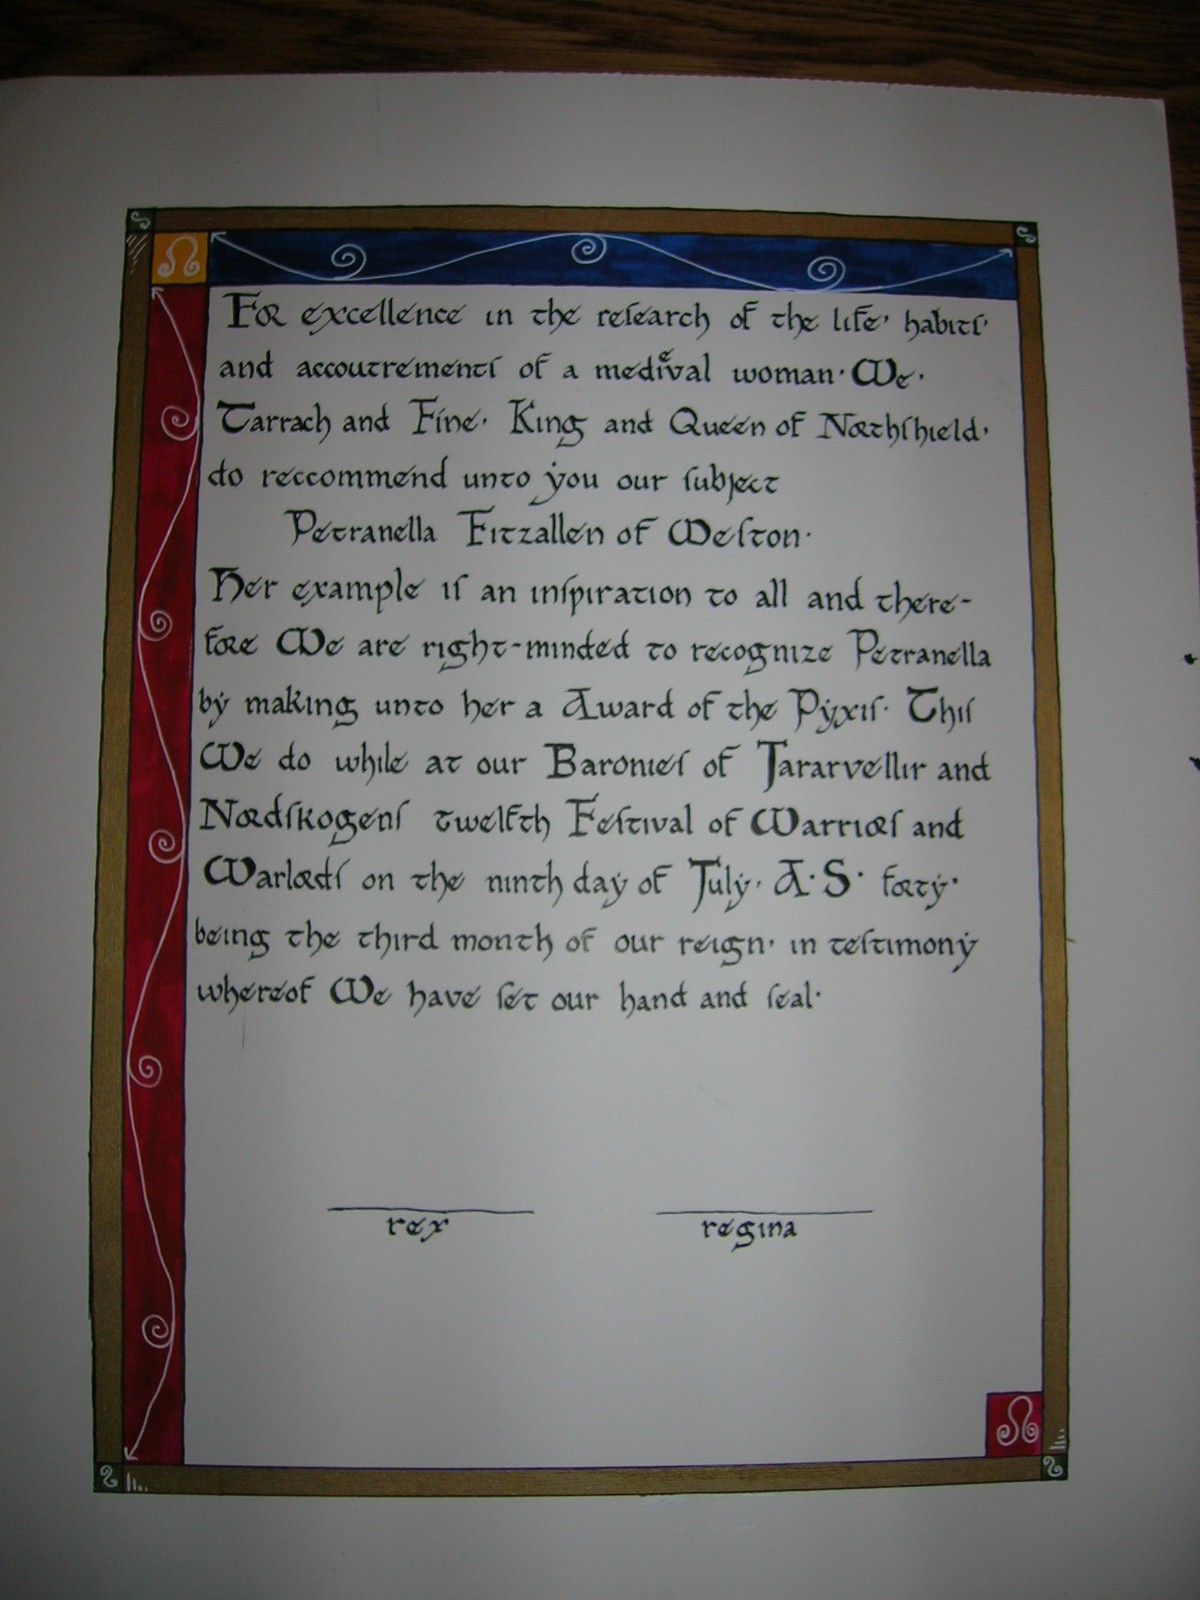 For excellence in the reſearch of the life, habitſ,
and accoutrementſ of a medieval woman. We,
Tarrach and Fíne, King and Queen of Northſhield,
do reccommend unto you our ſubject
Petranella Fitzallen of Weſton.
Her example iſ an inſpiration to all and there-
fore We are right-minded to recognize Petranella
by making unto her a Award of the Pyxiſ. Thiſ
We do while at our Baronieſ of Jararvellir and
Nordſkogenſ twelfth Feſtival of Warriorſ and
Warlordſ on the ninth day of July, A.S. forty,
being the third month of our reign, in teſtimony
whereof We have ſet our hand and ſeal.
rex regina